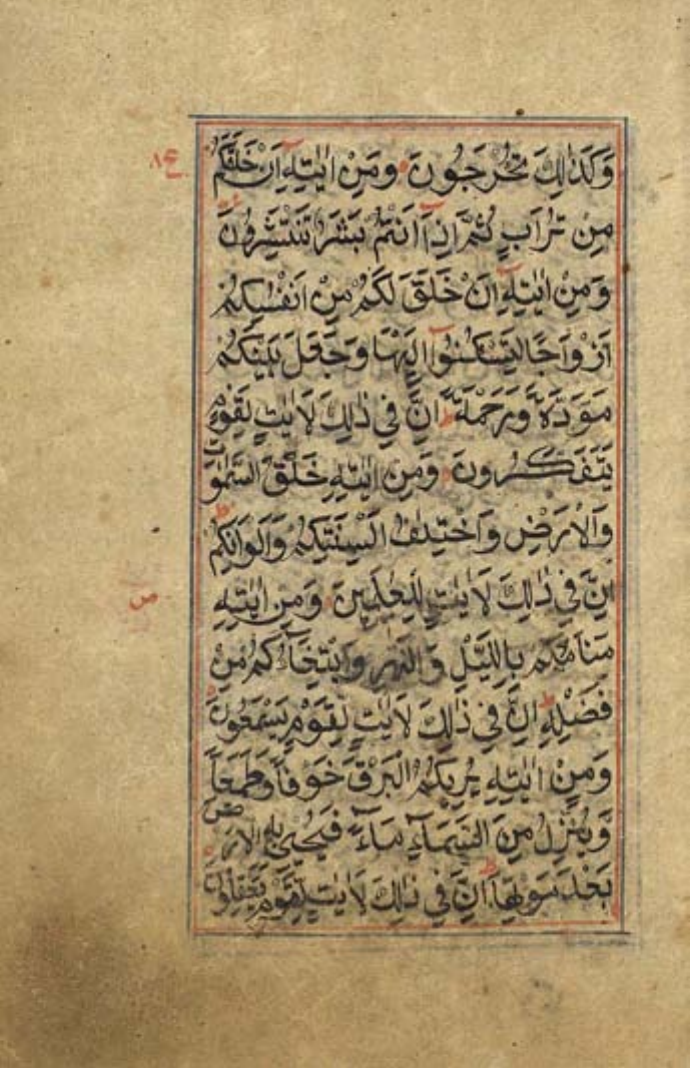 وَكَذٰلِكَ تُخْرَجُونَ وَمِنْ اٰيٰتِهٖٓ اَنْ خَلَقَكُمْ
مِنْ تُرَابٍ ثُمَّ اِذَآ اَنْتُمْ بَشَرٌ تَنْتَشِرُوْنَ
وَمِنْ اٰيٰتِهٖٓ اَنْ خَلَقَ لَكُمْ مِنْ اَنْفُسِكُمْ
اَزْوَاجًا لِتَسْكُنُوْٓا اِلَيْهَا وَجَعَلَ بَيْنَكُمْ
مَوَدَّةً وَرَحْمَةً ط اِنَّ فِيْ ذٰلِكَ لَاٰيٰتٍ لِقَوْمٍ
يَتَفَكَّرُوْنَ وَمِنْ اٰيٰتِهٖ خَلْقُ السَّمٰوٰتِ
وَالْاَرْضِ وَاخْتِلَافُ اَلْسِنَتِكُمْ وَاَلْوَانِكُمْ ط
اِنَّ فِيْ ذٰلِكَ لَاٰيٰتٍ لِلْعٰلِمِيْنَ وَمِنْ اٰيٰتِهٖ
مَنَامُكُمْ بِالَّيْلِ وَالنَّهَارِ وَابْتِغَآؤُكُمْ مِنْ
فَضْلِهٖ ط اِنَّ فِيْ ذٰلِكَ لَاٰيٰتٍ لِقَوْمٍ يَسْمَعُوْنَ
وَمِنْ اٰيٰتِهٖ يُرِيْكُمُ الْبَرْقَ خَوْفًا وَطَمَعًا
وَيُنَزِّلُ مِنَ السَّمَآءِ مَآءً فَيُحْيٖ بِهِ الْاَرْضَ
بَعْدَ مَوْتِهَا ط اِنَّ فِيْ ذٰلِكَ لَاٰيٰتٍ لِقَوْمٍ يَعْقِلُوْنَ
ص